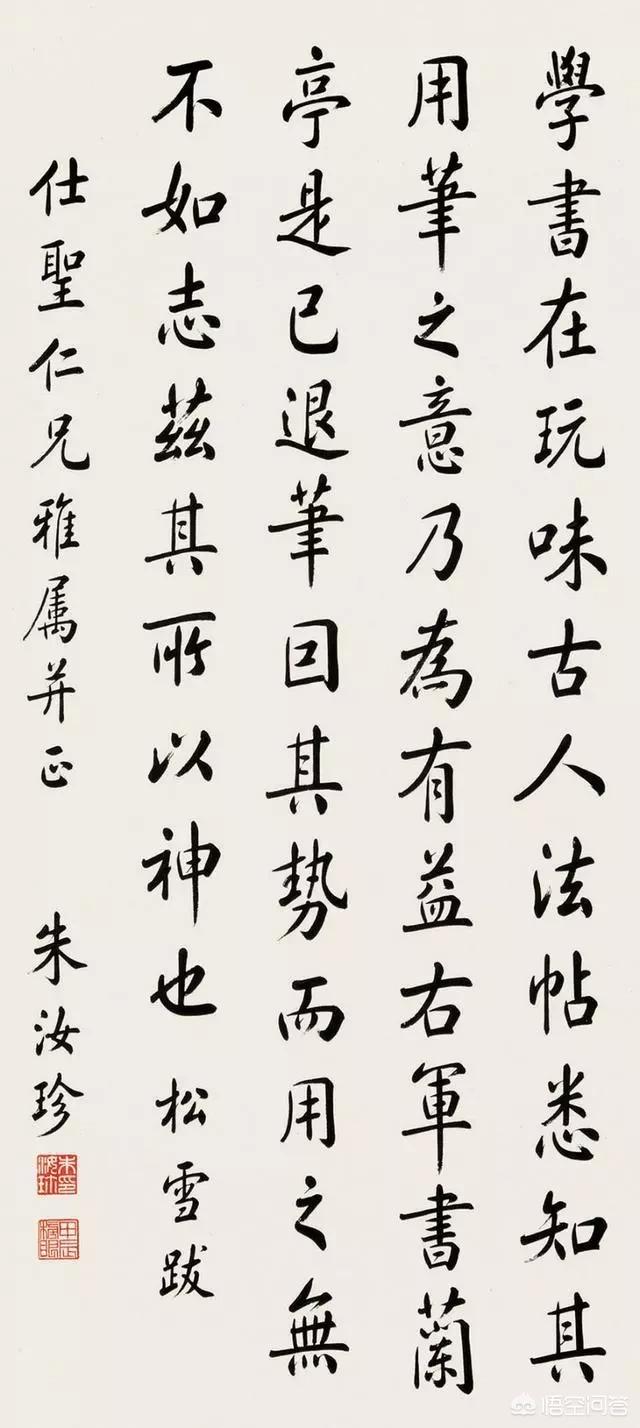 學書在玩味古人法帖悉知其
用筆之意乃為有益右軍書蘭
亭是已退筆因其勢而用之無
不如志茲其所以神也 松雪跋
仕聖仁兄雅属并正 朱汝珍
朱印汝珍
甲辰榜眼
悟空问答